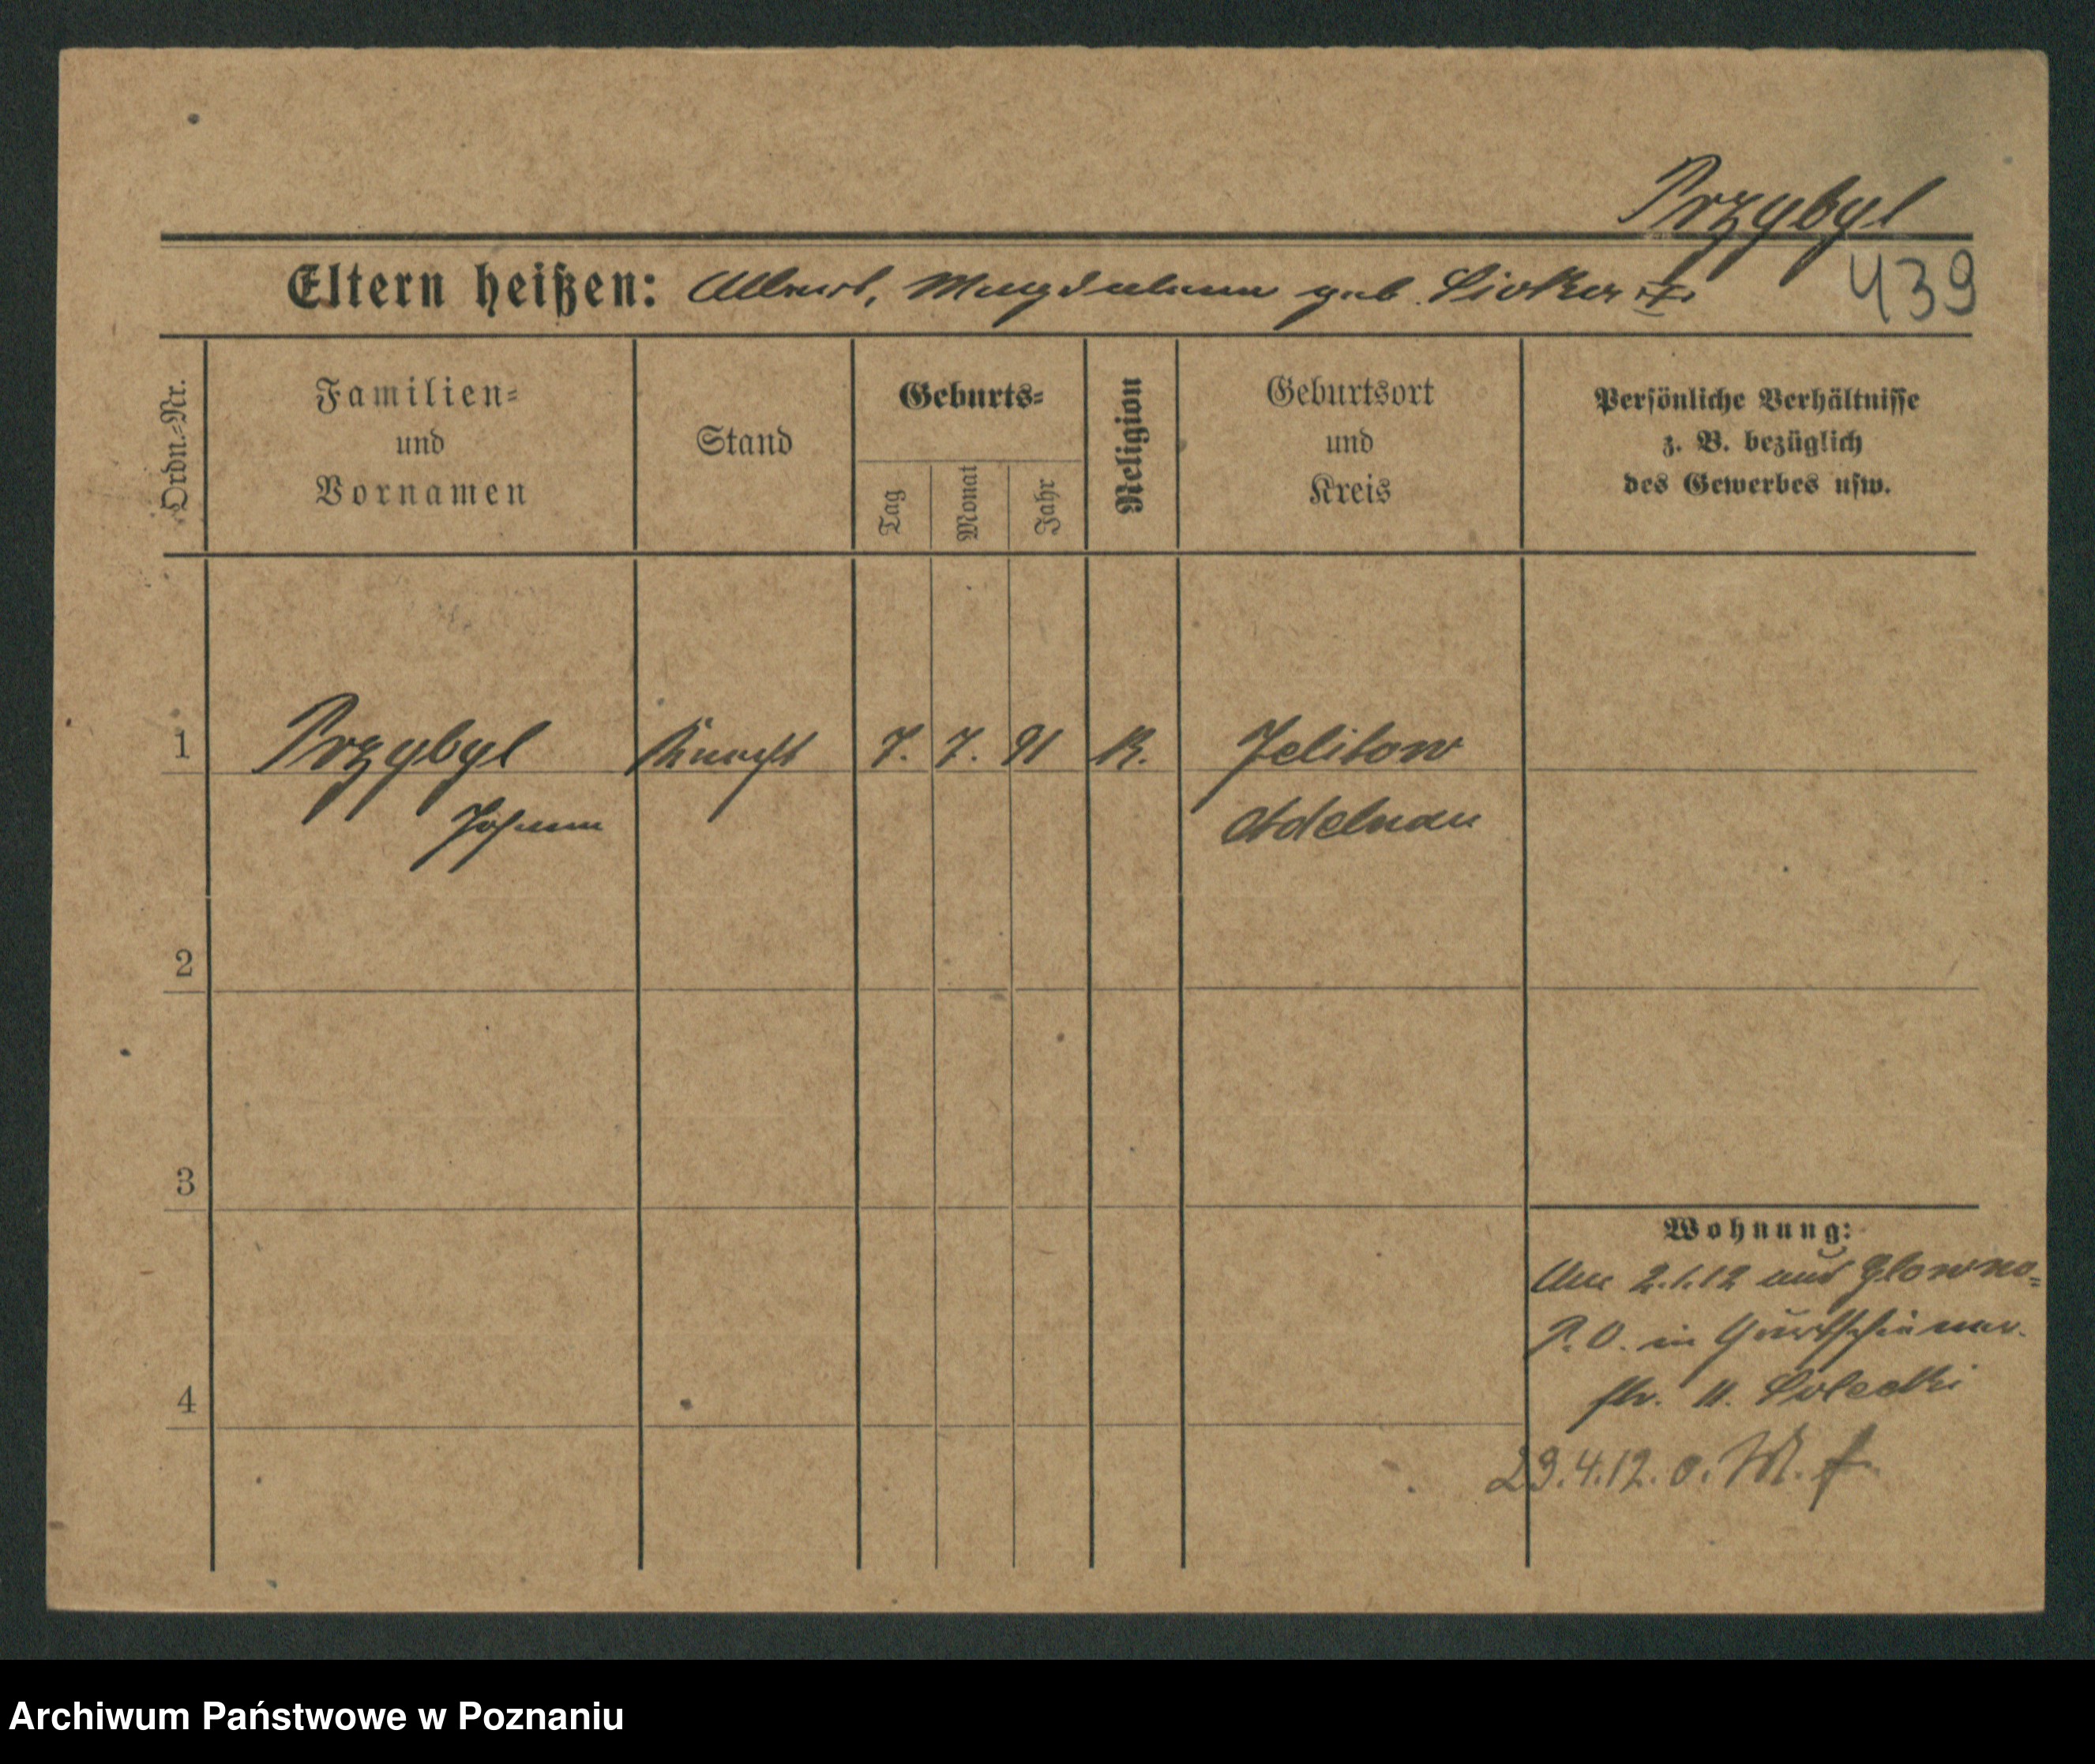 Przybyl
439
Eltern heißen: Albert, Magdalena geb.
Ordn.-Nr.
Familien-
und
Vornamen
Stand
Geburts-
Tag
Monat
Jahr
Religion
Geburtsort
und
Kreis
Persönliche Verhältnisse
z. B. bezüglich
des Gewerbes usw.
1 Przybyl Knecht 7. 7. 91 K. Jelitow
Johann Adelnau
2
3
Wohnung:
Am 2.1.12 aus Glowno-
P. O. in Gurtschiner-
4
str. 11. Solecki
29.4.12. o. M.
Archiwum Państwowe w Poznaniu